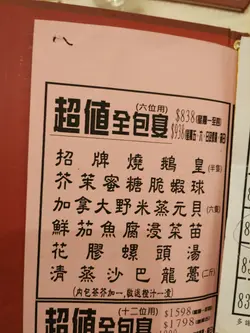 超值全包宴
(六位用)
$838(星期一至四)
$938(星期五、六、日及假期、前夕)
招牌燒鵝皇(半隻)
芥茉蜜糖脆蝦球
加拿大野米蒸元貝(六隻)
鮮茄魚腐浸菜苗
花膠螺頭湯
清蒸沙巴龍躉(二斤)
(內包茶芥加一,敬送橙汁一渣)
超值全包宴
(十二位用)
$1598
$1798